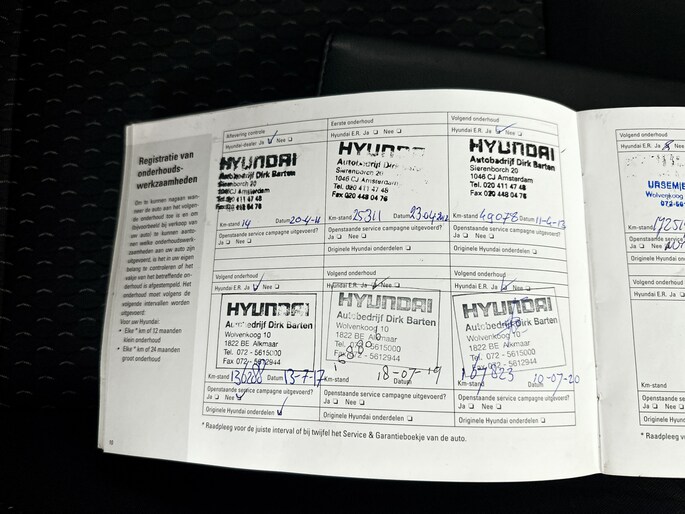 Registratie van
onderhouds-
werkzaamheden
Om te kunnen nagaan wan-
neer de auto aan het volgen-
de onderhoud toe is en om
(bijvoorbeeld bij verkoop
van auto) te kunnen aanto-
nen welke onderhoudswerk-
zaamheden aan uw auto zijn
uitgevoerd, is het in uw eigen
belang te controleren of het
vakje van het betreffende on-
derhoud is afgestempeld. Het
onderhoud moet volgens de
volgende intervallen worden
uitgevoerd:
Voor uw Hyundai:
Elke * km of 12 maanden
klein onderhoud
Elke * km of 24 maanden
groot onderhoud
Aflevering controle
Hyundai-dealer Ja Nee
HYUNDAI
Autobedrijf Dirk Barten
Sierenborch 20
1046 CJ Amsterdam
Tel. 020 411 47 48
Km-stand 14 Datum 20-4-11
Openstaande service campagne uitgevoerd?
Ja Nee
Eerste onderhoud
Hyundai E.R. Ja Nee
HYUNDAI
Dirk Barten
Sierenborch 20
1046 CJ Amsterdam
Tel. 020 411 47 48
Fax 020 448 04 76
Km-stand 25311 Datum
Openstaande service campagne uitgevoerd?
Ja Nee
Originele Hyundai onderdelen
Volgend onderhoud
Hyundai E.R. Ja Nee
HYUNDAI
Autobedrijf Dirk Barten
Sierenborch 20
1046 CJ Amsterdam
Tel. 020 411 47 48
Fax 020 448 04 76
Km-stand 49078 Datum 11-4-13
Openstaande service campagne uitgevoerd?
Ja Nee
Originele Hyundai onderdelen
Volgend onderhoud
Hyundai E.R. Ja Nee
HYUNDAI
Autobedrijf Dirk Barten
Wolvenkoog 10
1822 BE Alkmaar
Tel. 072 - 5615000
Fax 072 - 5612944
Km-stand Datum 13-7-17
Openstaande service campagne uitgevoerd?
Ja Nee
Originele Hyundai onderdelen
Volgend onderhoud
Hyundai E.R. Ja Nee
HYUNDAI
Autobedrijf Dirk Barten
Wolvenkoog 10
1822 BE Alkmaar
Tel. 072 - 5615000
Fax 072 - 5612944
Km-stand Datum 18-07-19
Openstaande service campagne uitgevoerd?
Ja Nee
Originele Hyundai onderdelen
Volgend onderhoud
Hyundai E.R. Ja Nee
HYUNDAI
Autobedrijf Dirk Barten
Wolvenkoog 10
1822 BE Alkmaar
Tel. 072 - 5615000
Fax 072 - 5612944
Km-stand Datum 10-07-20
Openstaande service campagne uitgevoerd?
Ja Nee
Originele Hyundai onderdelen
* Raadpleeg voor de juiste interval of bij twijfel het Service & Garantieboekje van de auto.
Volgend onderhoud
Hyundai E.R. Ja Nee
Wolvenkoog
Km-stand
Openstaande se
Ja Nee
Originele Hyundai
Volgend onderhoud
Hyundai E.R. Ja
Km-stand
Openstaande ser
Ja Nee
Originele Hyundai
* Raadpleeg voor